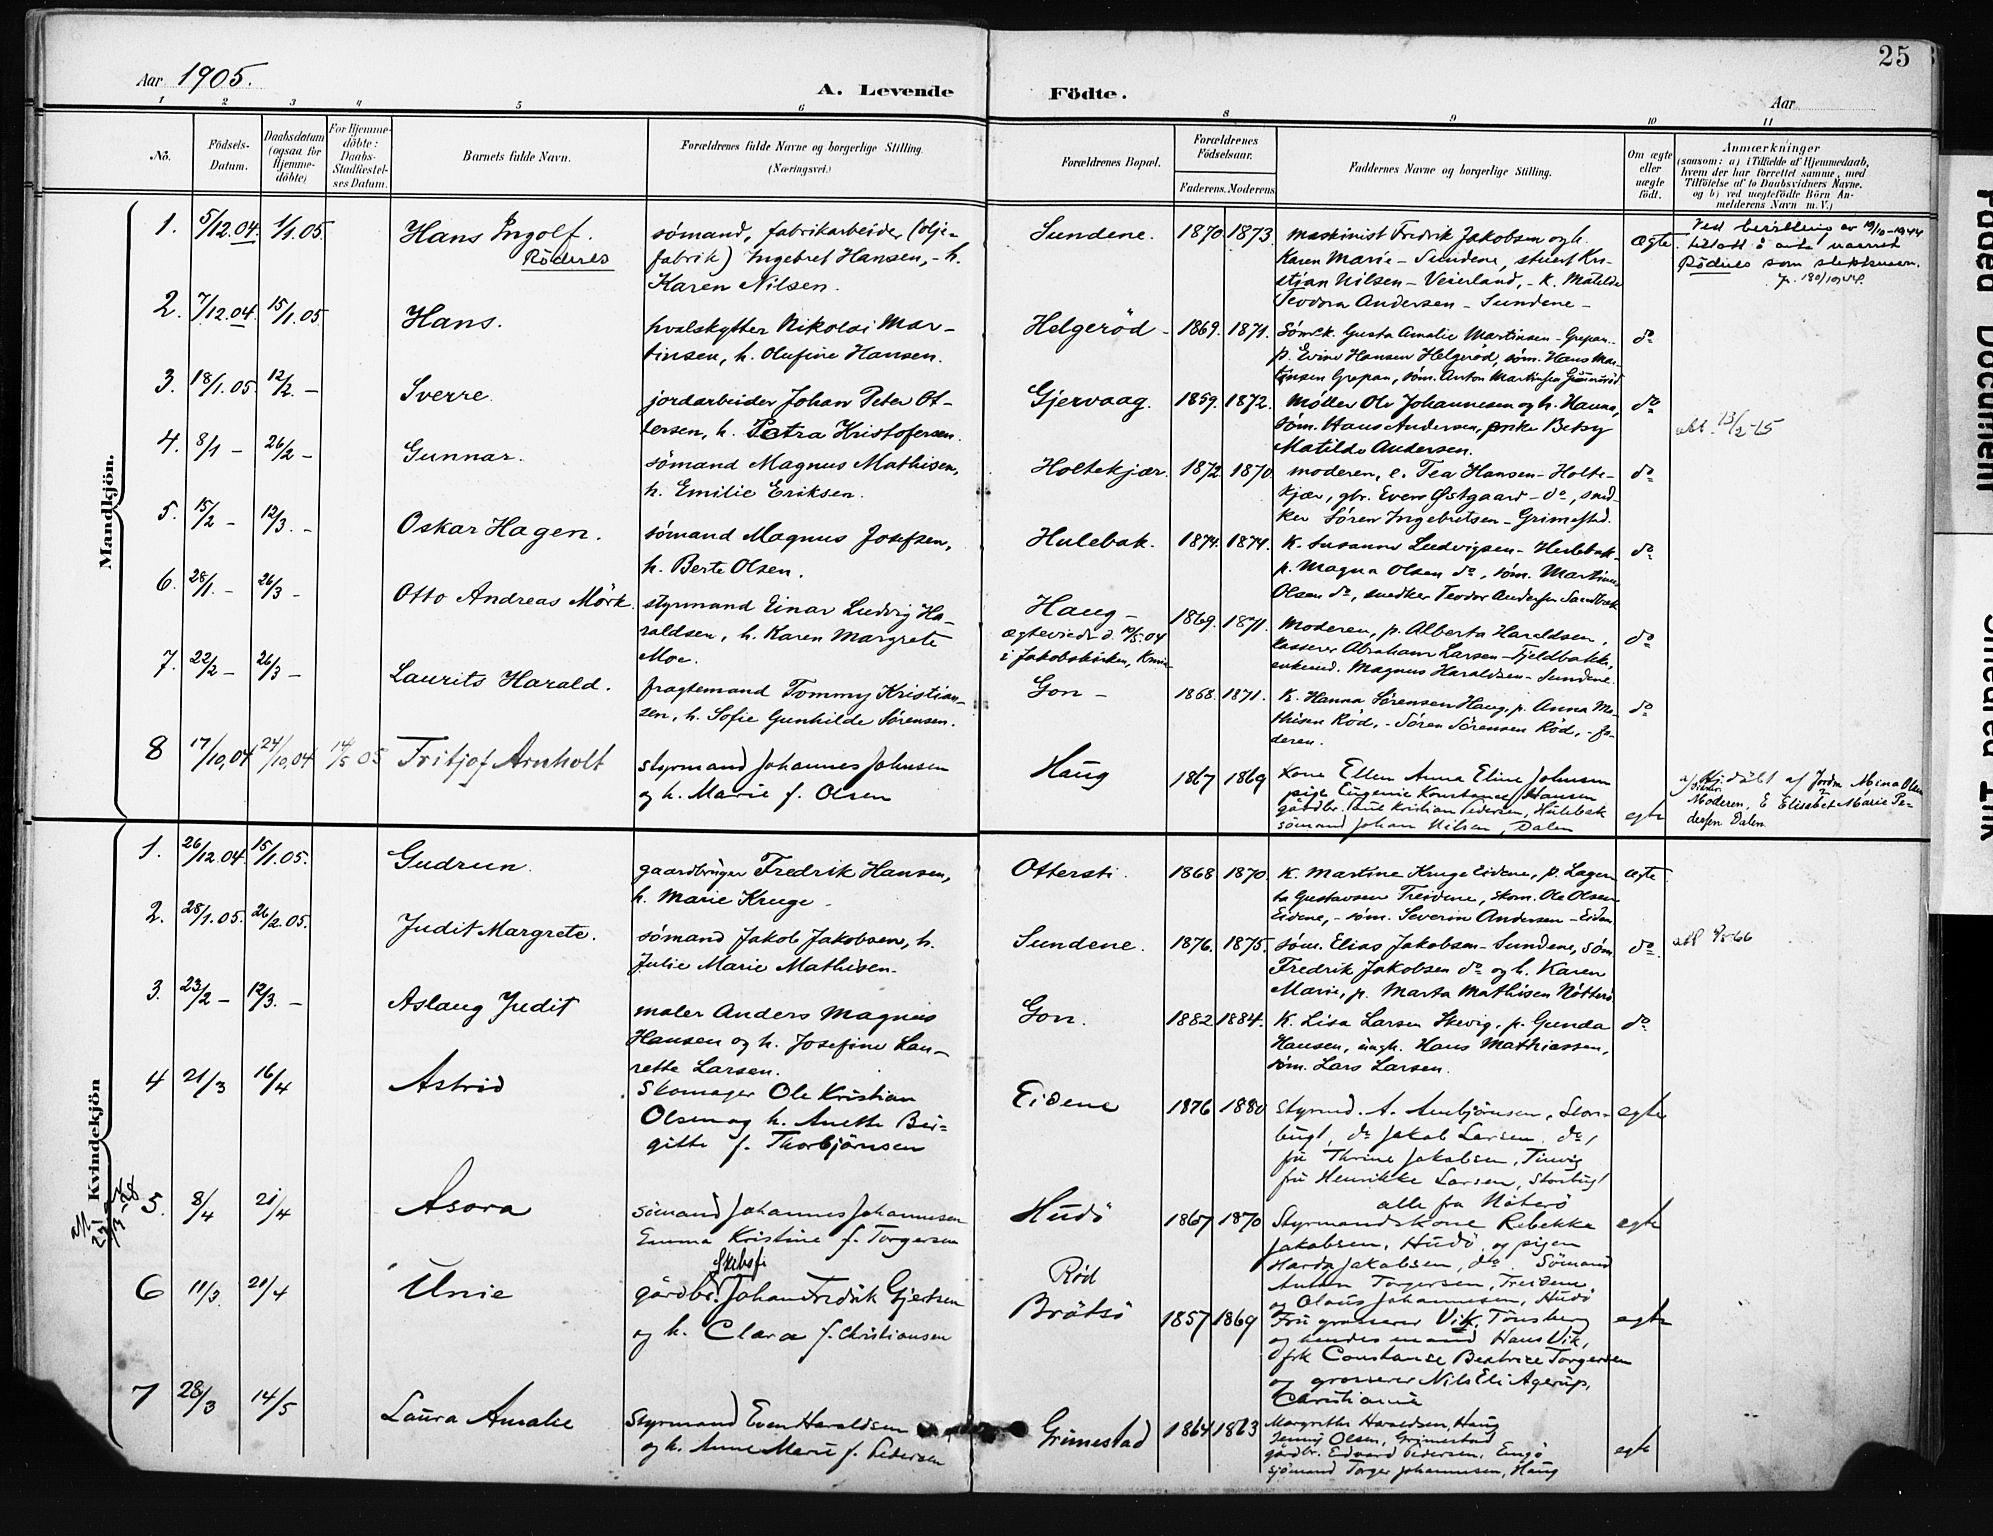 25
Aar 1905.
A. Levende Födte.
Aar
1 2 3 4 5 6 8 9 10 11
No.
Födsels-Datum.
Daabsdatum (ogsaa for Hjemme-döbte)
For Hjemme-döbte: Daabs-Stadfæstel-ses Datum.
Barnets fulde Navn.
Forældrenes fulde Navne og borgerlige Stilling.
(Næringsvei.)
Forældrenes Bopæl.
Forældrenes Födselsaar.
Faderens. Moderens.
Faddernes Navne og borgerlige Stilling.
Om ægte eller uægte födt.
Anmærkninger
(saasom: a) i Tilfælde af Hjemmedaab,
hvem der har forrettet samme, med
Tilföielse af to Daabsvidners Navne.
og b) ved uægtefödte Börn An-
melderens Navn m. V.)
Mandkjön.
1. 5/12.04. 1/1.05. Hans Ingolf.
Rödnes
sømand, fabrikarbeider (olje-
fabrik) Ingebret Hansen, - h.
Karen Nilsen.
Sundene. 1870. 1873.
maskinist Fredrik Jakobsen og h.
Karen Marie - Sundene, stuert Kri-
stian Nilsen - Veierland, - k. Matilde
Teodora Andersen - Sundene -
ægte
Ved bevilling av 19/10-1944
tillatt å anta navnet
Rödnes som slektsnavn.
2. 7/12.04. 15/1.05. Hans.
hvalskytter Nikolai Mar-
tinsen, h. Olufine Hansen.
Helgeröd - 1869. 1871.
Gusta Amalie Martinsen - Grepan.
p. Evine Hansen Helgerød, søm. Hans Mar-
tinsen Grepan, søm. Anton Martinsen
do
3. 18/1.05. 12/2 - Sverre.
jordarbeider Johan Peter Ot-
tersen, h. Petra Kristofersen.
Gjervaag. 1859. 1872.
Møller Ole Johannesen og h. Hanna,
søm. Hans Andersen, Betsy
Matilde Andersen.
do
13/2-15
4. 8/1 - 26/2 - Gunnar.
sømand Magnus Mathisen,
h. Emilie Eriksen.
Holtekjær. 1872. 1870.
moderen, e. Tea Hansen - Holte-
kjær, gbr. Even Østgaard - do, sned-
ker Søren Ingebretsen - Grimestad.
do
5. 15/2 - 12/3. - Oskar Hagen.
sømand Magnus Josefsen,
h. Berte Olsen.
Hulebak. 1874. 1874.
k. Susanne Ludvigsen - Hulebak -
p. Magna Olsen do, søm. Martin
Olsen do, snedker Teodor Andersen Sandbæk
do
6. 28/1. - 26/3 - Otto Andreas Mörk.
styrmand Einar Ludvig Ha-
raldsen, h. Karen Margrete
Moe.
Haug -
ægteviede d. 10/5.04
i Jakobskirken,
1869. 1871.
Moderen, p. Alberta Haraldsen,
kasserer Abraham Larsen - Fjeldbakke,
Magnus Haraldsen - Sundene.
do
7. 22/2 - 26/3 - Laurits Harald.
fragtemand Tommy Kristian-
sen, h. Sofie Gunhilde Sørensen.
Gon - 1868. 1871.
K. Hanna Sørensen Haug, p. Anna Ma-
thisen Rød, - Søren Sørensen Rød, - fa-
deren.
do
8 17/10,04 24/10,04 14/5 05 Fritjof Arnholt
styrmand Johannes Johnsen
og h. Marie f. Olsen
Haug 1867 1869
Kone Ellen Anna Eline Johnsen
pige Eugenie Konstance Hansen
gårdbr. Kristian Pedersen, Hulebak
sömand Johan Nilsen, Dalen
egte
a/ Hj.döbt af Jordm. Mina Olsen
Moderen, E Elisabet Marie Pe-
dersen Dalen
Kvindekjön
1. 26/12.04. 15/1.05. Gudrun.
gaardbruger Fredrik Hansen,
h. Marie Kruge -
Ottersti. 1868 1870.
K. Martine Kruge Eidene, p. Lagen
ta Gustavsen Treidene, skom. Ole Olsen
Eidene, - søm. Severin Andersen - Eiden
ægte.
2. 28/1.05. 26/2.05. Judit Margrete.
sømand Jakob Jakobsen, h.
Julie Marie Mathisen.
Sundene. 1876. 1875.
søm. Elias Jakobsen - Sundene, søm
Fredrik Jakobsen do og h. Karen
Marie, p. Marta Mathisen Nötterö
do.
3. 23/2 - 12/3. - Aslaug Judit
maler Anders Magnus
Hansen og h. Josefine Lau-
rette Larsen.
Gon. 1882 1884.
K. Lisa Larsen Skevig, p. Gunda
Hansen, ungk. Hans Mathiassen,
søm. Lars Larsen.
do
4 21/3 16/4 Astrid
Skomager Ole Kristian
Olsen og h. Anette Bir-
gitte f. Thorbjörnsen
Eidene 1876 1880
Styrmd. A. Arnbjörnsen, Stor-
bugt, do Jakob Larsen, do,
fru Thrine Jakobsen, Tinvig
fru Henrikke Larsen, Storbugt
alle fra Nöterö
egte
5. 8/4 21/4 Asora
Sömand Johannes Johannesen
Emma Kristine f. Torgersen
Hudö 1867 1870
Styrmandskone Rebekka
Jakobsen, Hudö og pigen
Harda Jakobsen, do. Sömand
Anton Torgersen, Treidene
og Olaus Johannesen, Hudö
egte
6 11/3 21/4 Unie
gårdbr. Johan Fredrik Gjertsen
og h. Clara f. Christiansen
Rød
Brötsö
1857 1869
Fru grosserer Vik, Tönsberg
og hendes mand Hans Vik,
frk Constanse Beatrice Torgersen
og grosserer Nils Eli Agerup,
Christiania
egte
7 28/3 14/5 Laura Amalie
Styrmand Even Haraldsen
og h. Anne Marie f. Pedersen
Grimestad 1864 1863
Margrethe Haraldsen, Haug
Jenny Olsen, Grimestad
gårdbr. Edvard Pedersen, Engö
sjömand Torger Johannesen, Haug
egte